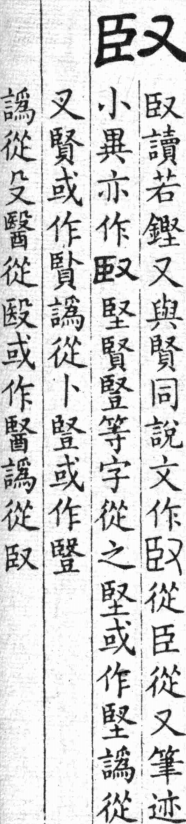 臤
臤讀若鏗又與賢同說文作臤從臣從又筆迹
小異亦作臤堅賢豎等字從之堅或作堅譌從
叉賢或作贀譌從卜豎或作豎
譌從殳醫從殹或作醫譌從臤